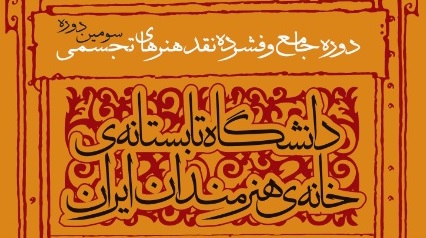 سومین دوره
دوره جامع و فشرده نقد هنرهای تجسمی
دانشگاه تابستانه‌ی
خانه‌ی هنرمندان ایران